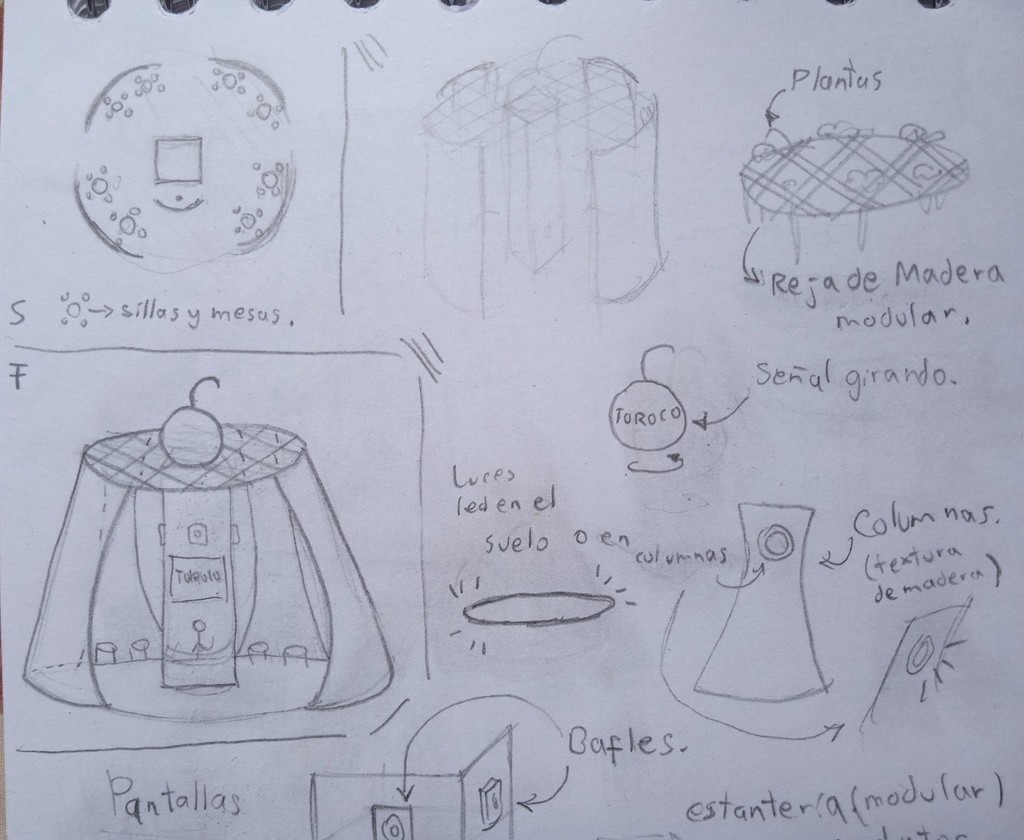 Plantas
Reja de Madera
modular.
S → sillas y mesas.
F
Señal girando.
TOROCO
Luces
led en el
suelo o en
columnas
Columnas.
(textura
de madera)
TOROCO
Bafles.
Pantallas
estantería (modular)